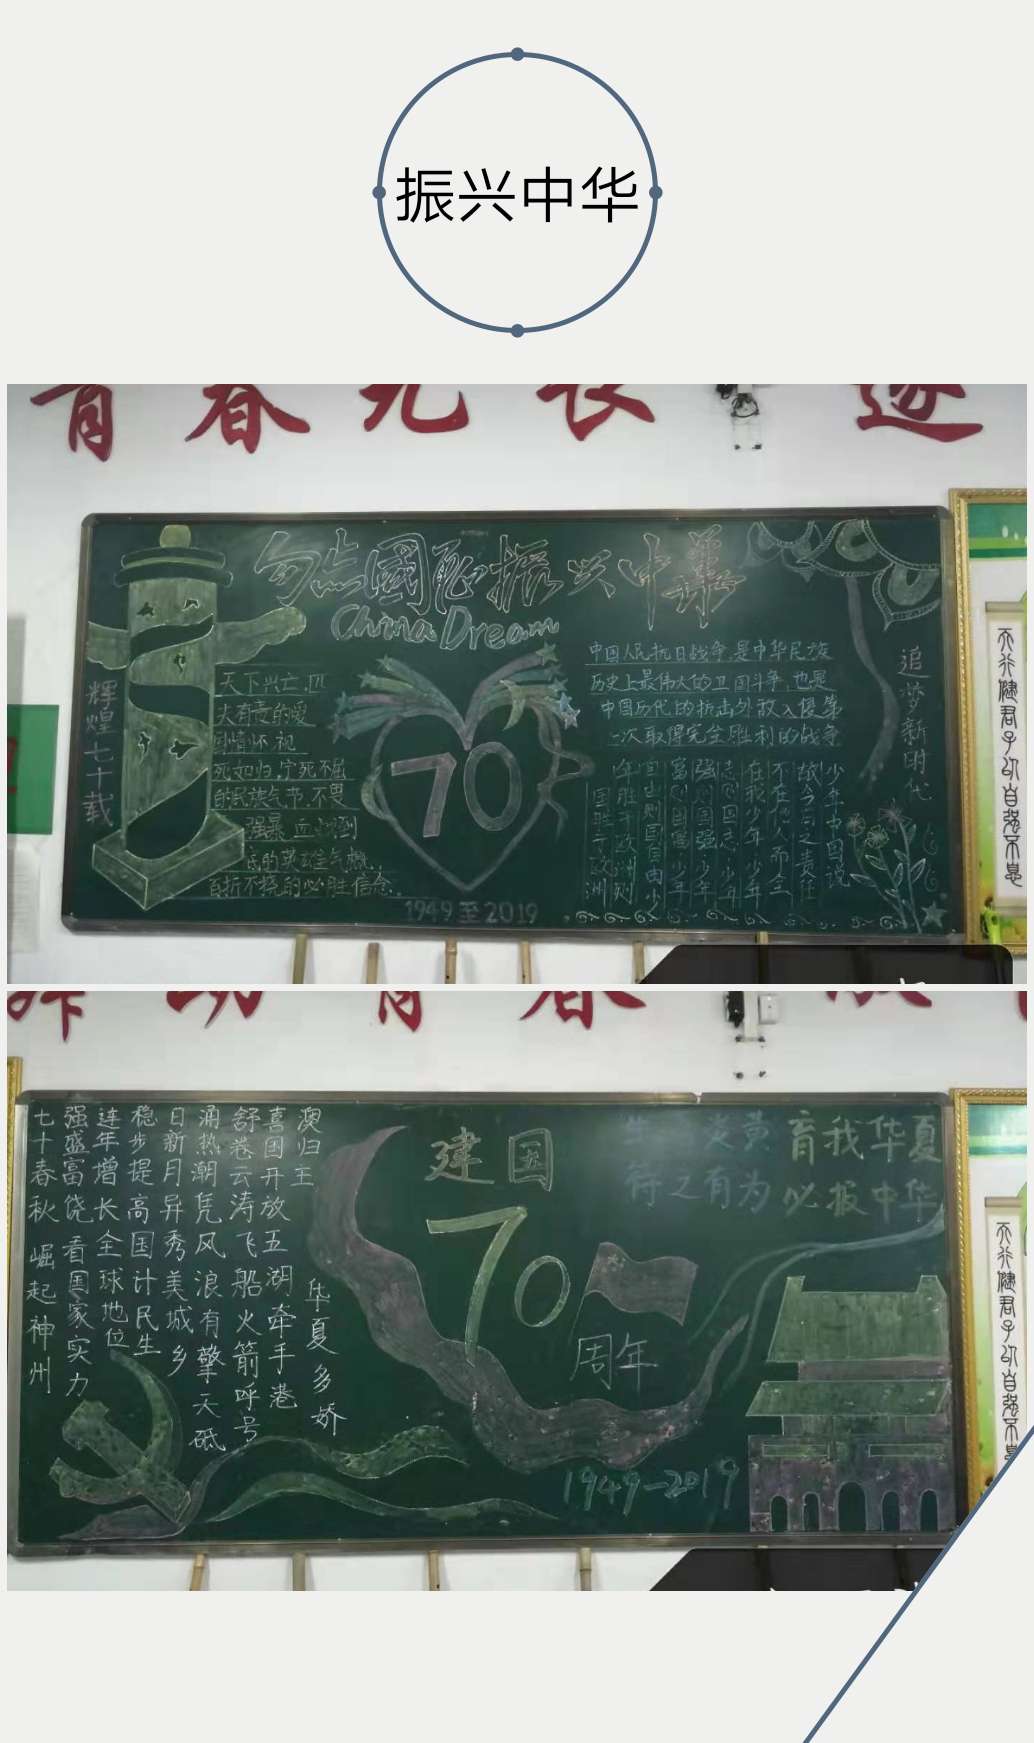 振兴中华
青春
逐
勿忘國恥振兴中華
China Dream
辉煌七十载
天下兴亡,匹
夫有责的爱
国情怀,视
死如归,宁死不屈
的民族气节,不畏
强暴,血战到
底的英雄气概,
百折不挠的必胜信念.
70
1949至2019
中国人民抗日战争,是中华民族
历史上最伟大的卫国斗争,也是
中国历代的抗击外敌入侵第
一次取得完全胜利的战争
少年中国说
故今日之责任
不在他人而全
在我少年 少年
志则国志 少年
强则国强 少年
富则国富 少年
自由则国自由 少
年胜于欧洲则
国胜于欧洲
追梦新时代
天行健君子以自强不息
青春
澳归主 华夏多娇
喜国开放五湖牵手港
舒卷云涛飞船火箭呼号
涌热潮凭风浪有擎天砥
日新月异秀美城乡
稳步提高国计民生
连年增长全球地位
强盛富饶看国家实力
七十春秋崛起神州
建国
70
周年
1949-2019
育我华夏
待之有为 必报中华
天行健君子以自强不息